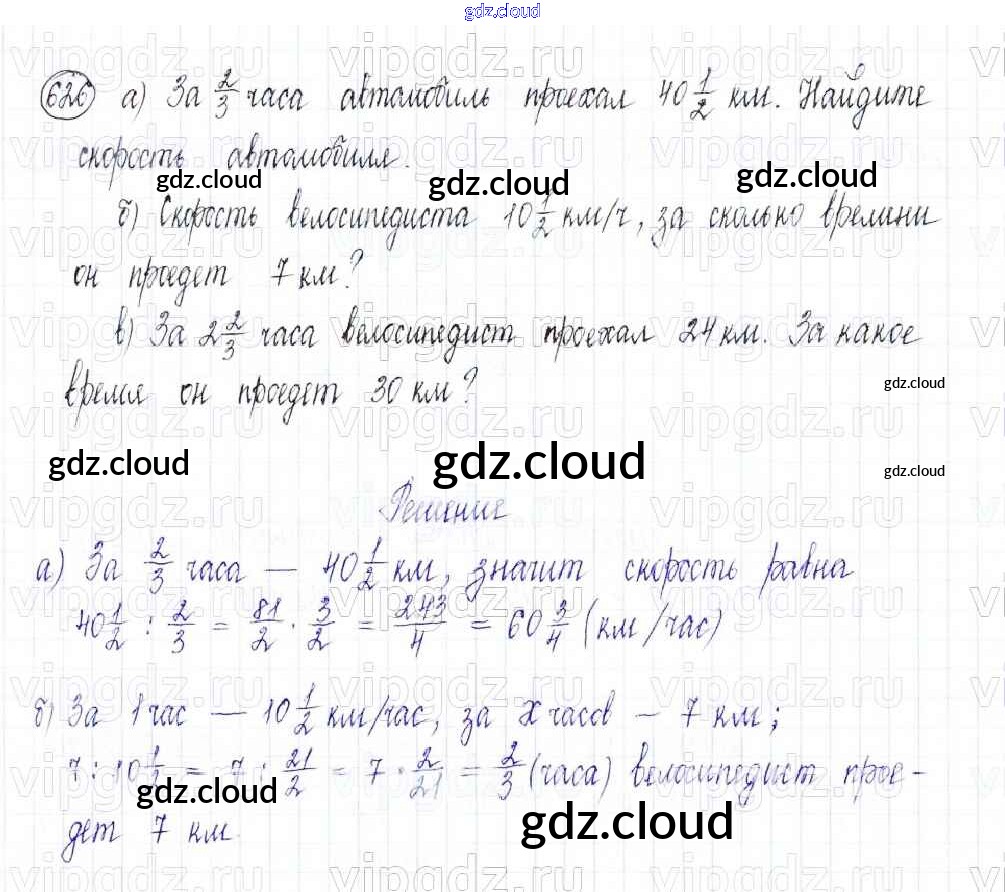 gdz.cloud
626 а) За 2/3 часа автомобиль проехал 40 1/2 км. Найдите
скорость автомобиля.
gdz.cloud gdz.cloud gdz.cloud
б) Скорость велосипедиста 10 1/2 км/ч, за сколько времини
он проедет 7 км?
в) За 2 2/3 часа велосипедист проехал 24 км. За какое
время он проедет 30 км?
gdz.cloud
gdz.cloud gdz.cloud gdz.cloud
Решение
а) За 2/3 часа — 40 1/2 км, значит скорость равна
40 1/2 : 2/3 = 81/2 · 3/2 = 243/4 = 60 3/4 (км/час)
б) За 1 час — 10 1/2 км/час, за x часов — 7 км;
7 : 10 1/2 = 7 : 21/2 = 7 · 2/21 = 2/3 (часа) велосипедист прое-
gdz.cloud
дет 7 км.
gdz.cloud
vipgdz.ru